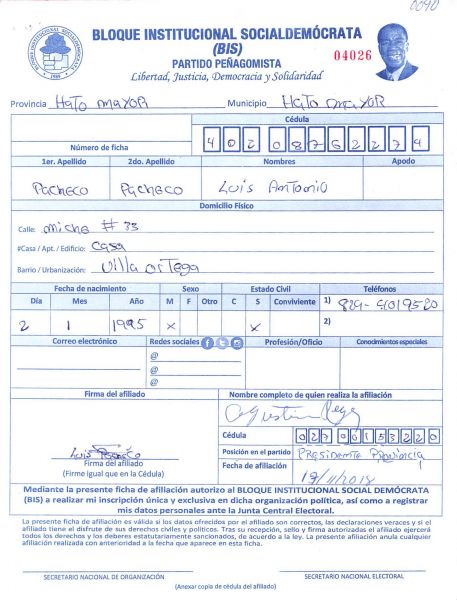 0040
BLOQUE INSTITUCIONAL SOCIALDEMÓCRATA
(BIS)
PARTIDO PEÑAGOMISTA
04026
Libertad, Justicia, Democracia y Solidaridad
Provincia Hato mayor Municipio Hato mayor
Número de ficha
Cédula
402 0876227 4
1er. Apellido 2do. Apellido Nombres Apodo
Pacheco Pacheco Luis Antonio
Domicilio Físico
Calle: miche # 33
#Casa / Apt. / Edificio: Casa
Barrio / Urbanización: Villa ortega
Fecha de nacimiento Sexo Estado Civil Teléfonos
Día Mes Año M F Otro C S Conviviente 1) 829-4019520
2 1 1995 x x 2)
Correo electrónico Redes sociales Profesión/Oficio Conocimientos especiales
@
@
@
Firma del afiliado Nombre completo de quien realiza la afiliación
Luis Pacheco
Firma del afiliado
(Firme igual que en la Cédula)
Agustin
Cédula 027 0015322 0
Posición en el partido Presidente Provincia
Fecha de afiliación 19/11/2018
Mediante la presente ficha de afiliación autorizo al BLOQUE INSTITUCIONAL SOCIAL DEMÓCRATA
(BIS) a realizar mi inscripción única y exclusiva en dicha organización política, así como a registrar
mis datos personales ante la Junta Central Electoral.
La presente ficha de afiliación es válida si los datos ofrecidos por el afiliado son correctos, las declaraciones veraces y si el
afiliado tiene el disfrute de sus derechos civiles y políticos. Tras su recepción, sello y firma autorizadas el afiliado ejercerá
todos los derechos y los deberes estatutariamente sancionados, de acuerdo a la ley. La presente afiliación anula cualquier
afiliación realizada con anterioridad a la fecha que aparece en esta ficha.
SECRETARIO NACIONAL DE ORGANIZACIÓN SECRETARIO NACIONAL ELECTORAL
(Anexar copia de cédula del afiliado)